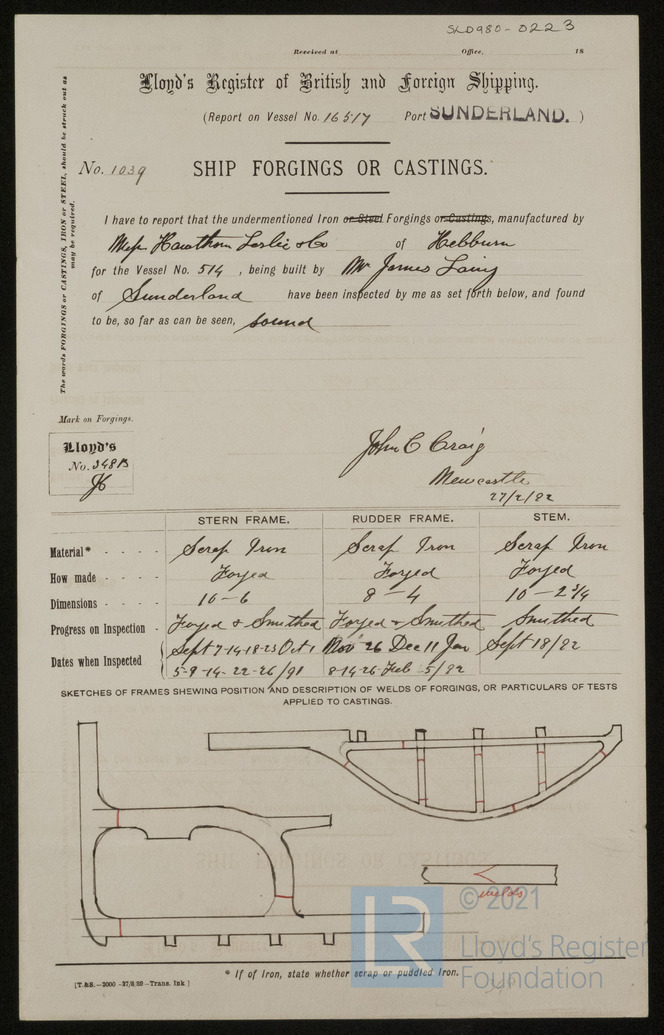 SLD980-0223
Received at Office, 18
Lloyd's Register of British and Foreign Shipping.
(Report on Vessel No. 16517 Port SUNDERLAND. )
No. 1039 SHIP FORGINGS OR CASTINGS.
The words FORGINGS or CASTINGS, IRON or STEEL, should be struck out as
may be required.
I have to report that the undermentioned Iron or Steel Forgings or Castings, manufactured by
Mess Hawthorn Leslie & Co of Hebburn
for the Vessel No. 514 , being built by Mr James Laing
of Sunderland have been inspected by me as set forth below, and found
to be, so far as can be seen, sound
Mark on Forgings.
Lloyd's
No. 348B
John C Craig
Newcastle
27/2/92
STERN FRAME. RUDDER FRAME. STEM.
Material* - - - - Scrap Iron Scrap Iron Scrap Iron
How made - - - - Forged Forged Forged
Dimensions - - - - 10-6 8-4 10-2 3/4
Progress on Inspection - Forged & Smithed Forged & Smithed Smithed
Dates when Inspected Sept 7-14-18-23 Oct 1 Nov 26 Dec 11 Jan Sept 18/92
5-9-14-22-26/91 8-14-26 Feb 5/92
SKETCHES OF FRAMES SHEWING POSITION AND DESCRIPTION OF WELDS OF FORGINGS, OR PARTICULARS OF TESTS
APPLIED TO CASTINGS.
welds
© 2021
LR Lloyd's Register
Foundation
* If of Iron, state whether scrap or puddled iron.
[T.&S.-2000-27/8/89-Trans. Ink]